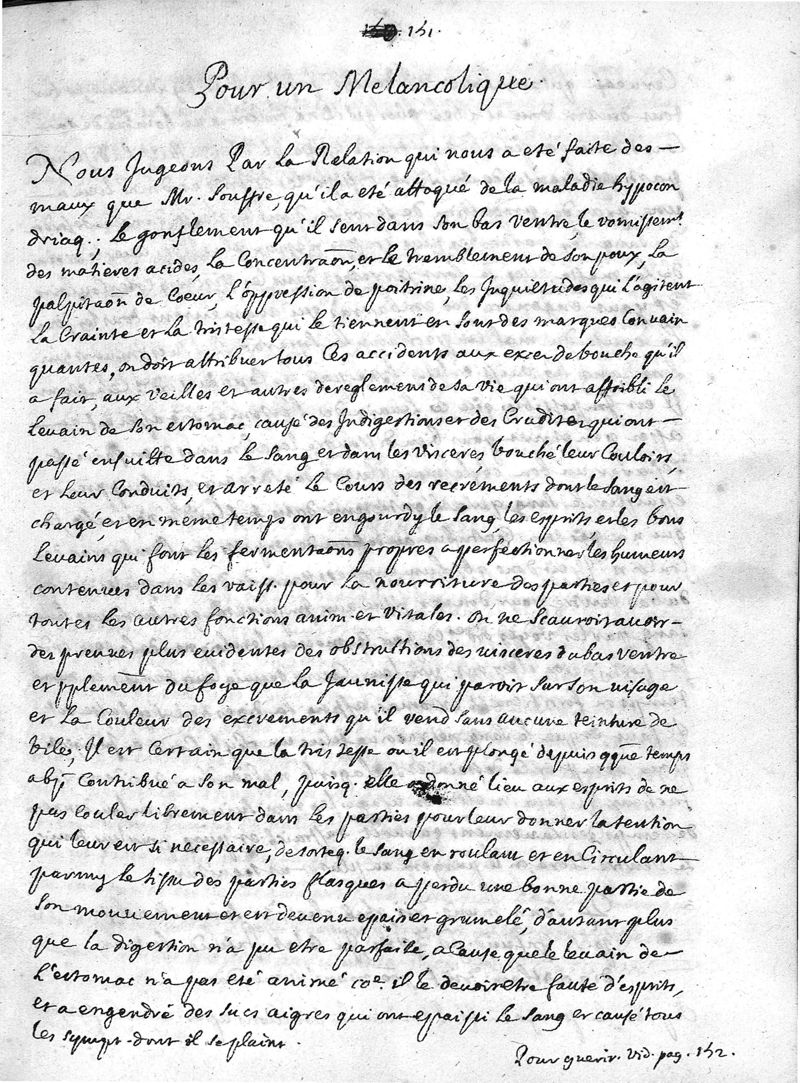 151.
Pour un Melancolique.
Nous Jugeons Par La Relation qui nous a eté faite des
maux que Mr. Souffre, qu'il a eté attaqué de la maladie hypocon
driaq.; Le gonflement qu'il sent dans son bas ventre, le vomissemt.
des matieres acides, La Concentraõn, et Le tremblement de Son poux, La
palpitaõn de Coeur, L'oppression de poitrine, Les Inquietudes qui L'agitent
La Crainte et La tristesse qui Le tiennent en Sont des marques Convain
quantes, on doit attribuer tous Ces accidents aux exces de bouche qu'il
a fait, aux Veilles et autres dereglemens de Sa Vie qui ont affoibli Le
Levain de Son estomac, causé des Indigestions et des Crudites qui ont
passé ensuitte dans Le Sang et dans les Visceres bouché Leur Couloirs,
et Leur Conduits, et arreté Le Cours des recréments dont Le Sang est
chargé, et en meme temps ont engourdy Le Sang, Les esprits et les bons
Levains qui font Les fermentaõns propres a perfectionner Les humeurs
contenues dans Les vaiss. pour La nourriture des parties et pour
toutes Les autres fonctions anim. et Vitales. on ne Scauroit avoir
des preuves plus evidentes des obstructions des visceres du bas Ventre
et pplement du foye que La Jaunisse qui paroit Sur Son visage
et La Couleur des excrements qu'il rend Sans aucune teinture de
bile; Il est Certain que la tristesse ou il est plongé depuis qque temps
a bp Contribué a Son mal, puisq. elle a donné lieu aux esprits de ne
pas couler Librement dans Les parties pour Leur donner La tention
qui Leur est Si necessaire, de sorteq. Le Sang en roulant et en Circulant
parmy Le tissu des parties flasques a perdu une bonne partie de
Son mouvement et est devenu epais et grumelé, d'autant plus
que La digestion n'a pu etre parfaite, a Cause que le levain de
L'estomac n'a pas eté animé coe. il Le devoit etre faute d'esprits,
et a engendré des Sucs aigres qui ont epaissi Le Sang et causé tous
Les Sympt. dont il Se plaint.
Pour guerir. Vid. pag. 152.